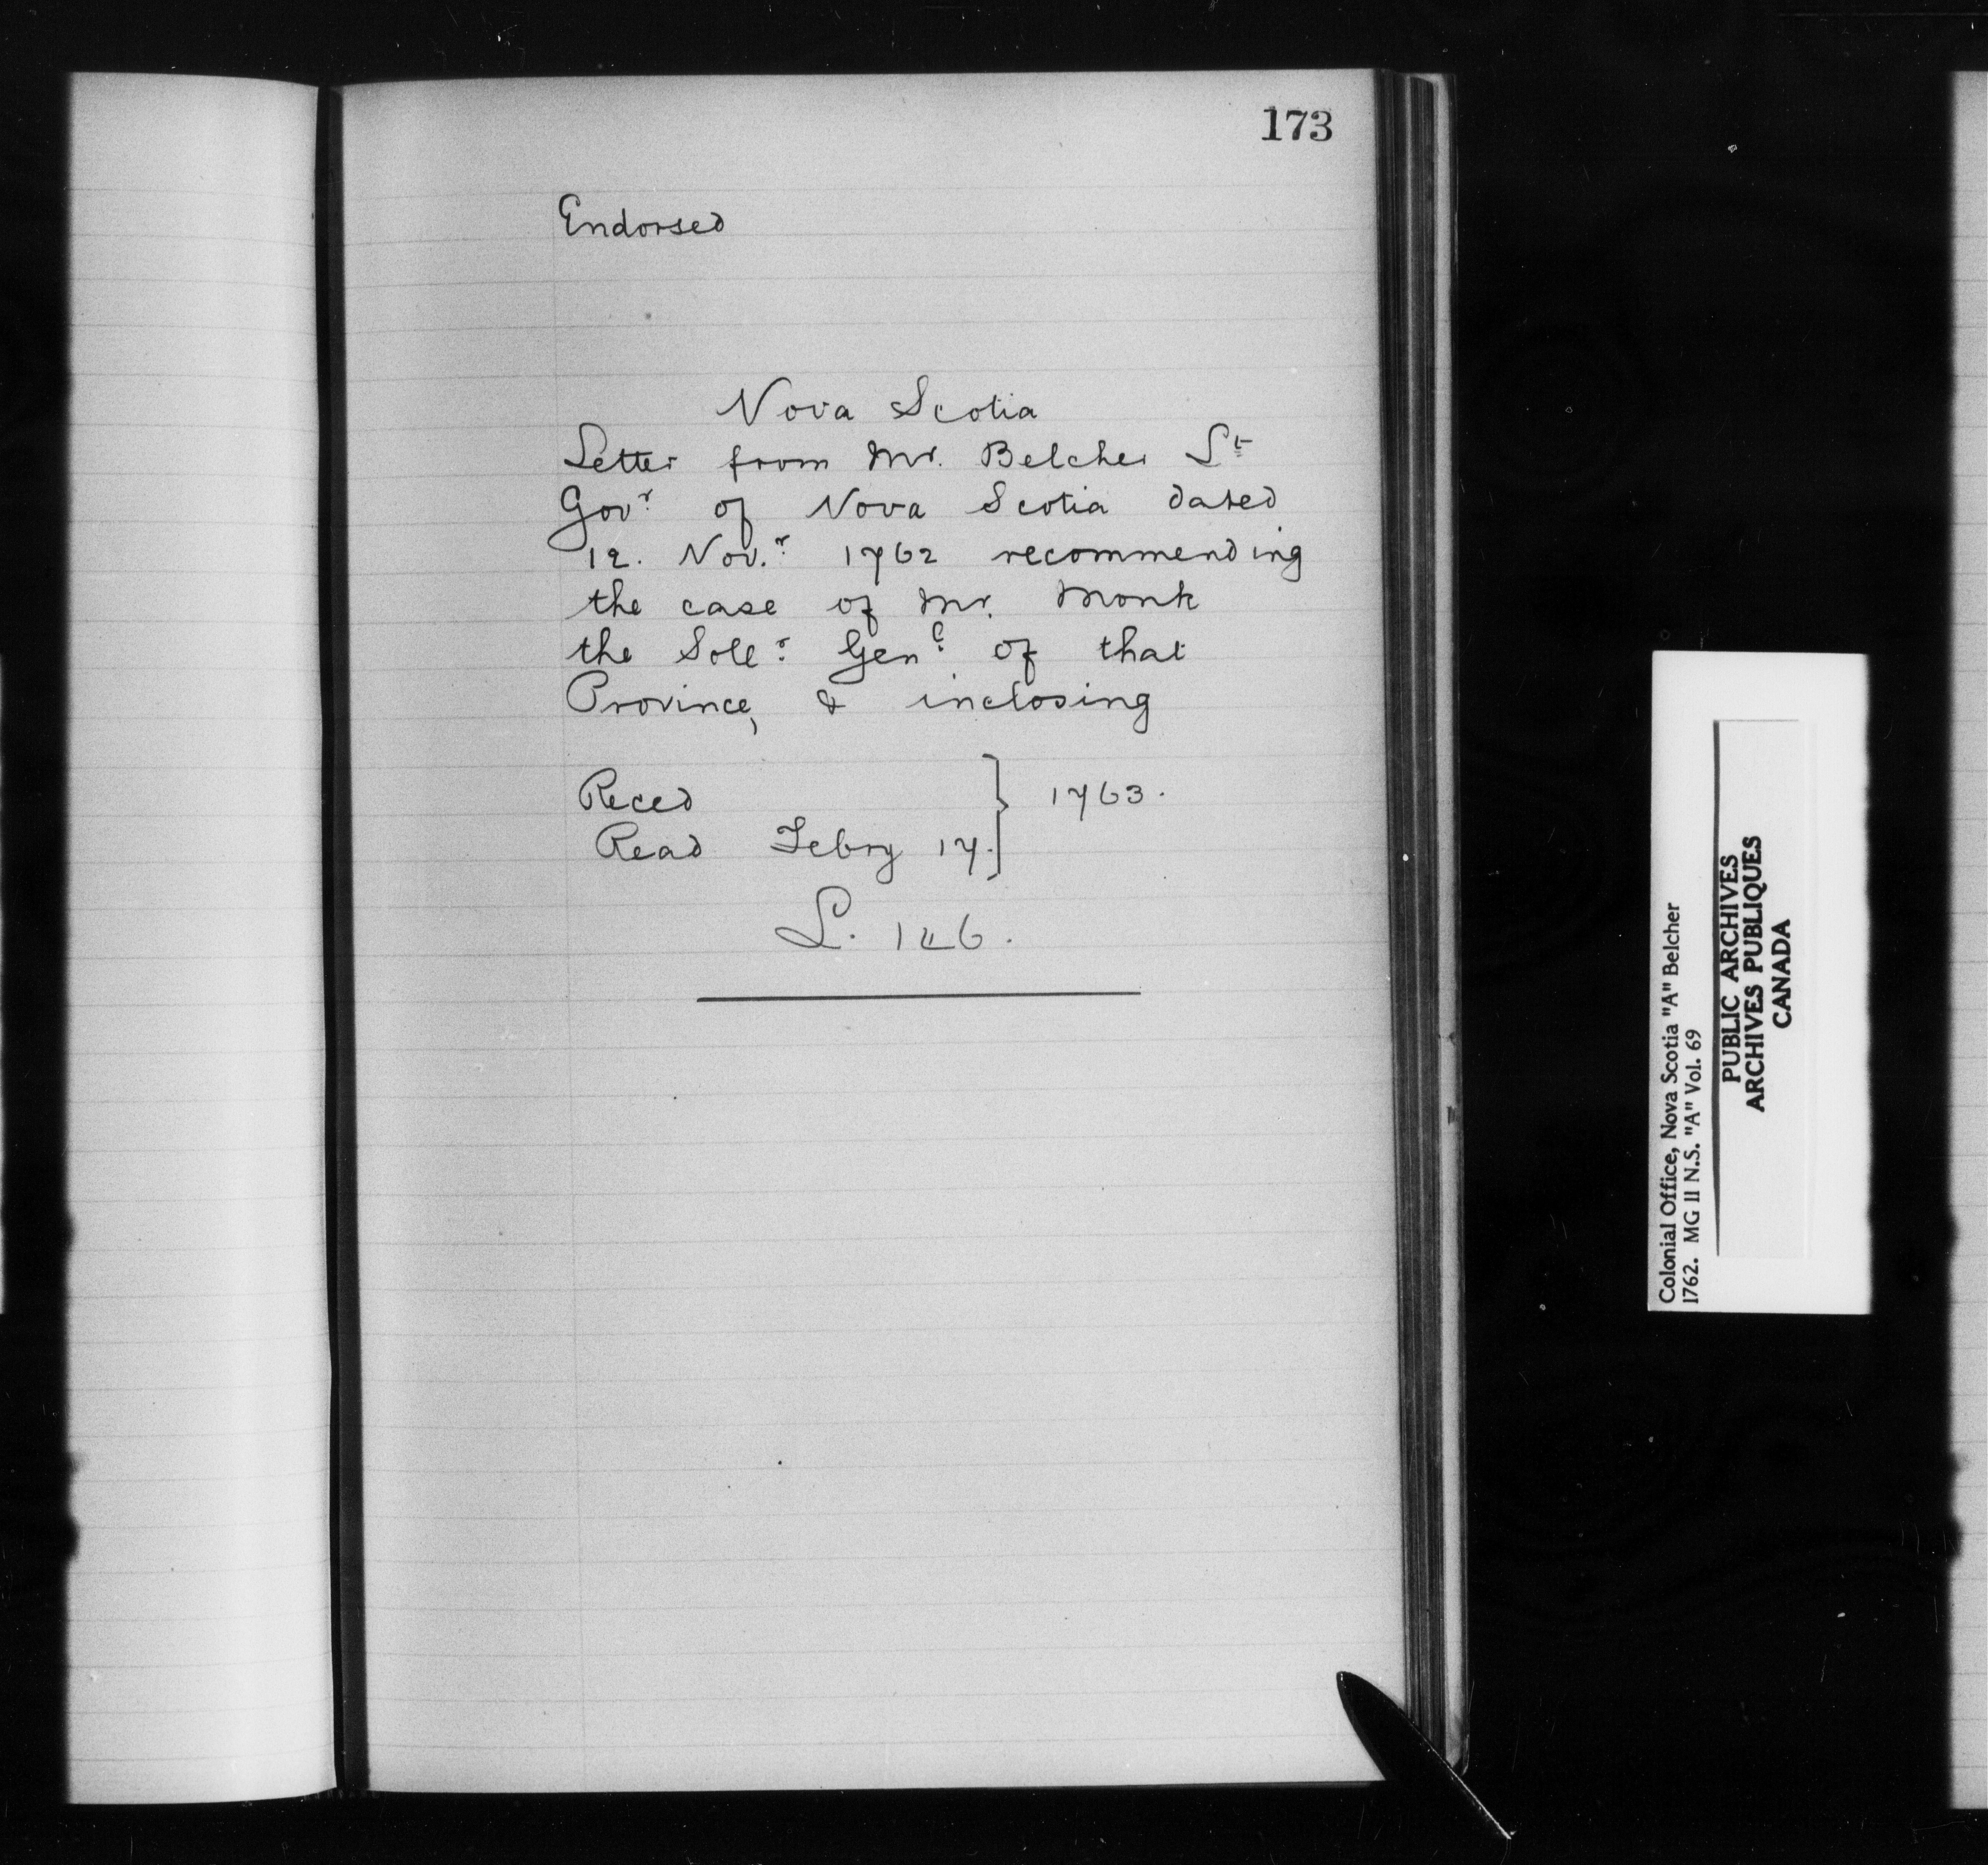 173
Endorsed
Nova Scotia
Letter from Mr. Belcher Lt
Govr of Nova Scotia dated
12. Nov.r 1762 recommending
the case of Mr. Monk
the Sollr Genl of that
Province, & inclosing
Reced } 1763.
Read Febry 17.
L. 146.
Colonial Office, Nova Scotia "A" Belcher
1762. MG 11 N.S. "A" Vol. 69
PUBLIC ARCHIVES
ARCHIVES PUBLIQUES
CANADA